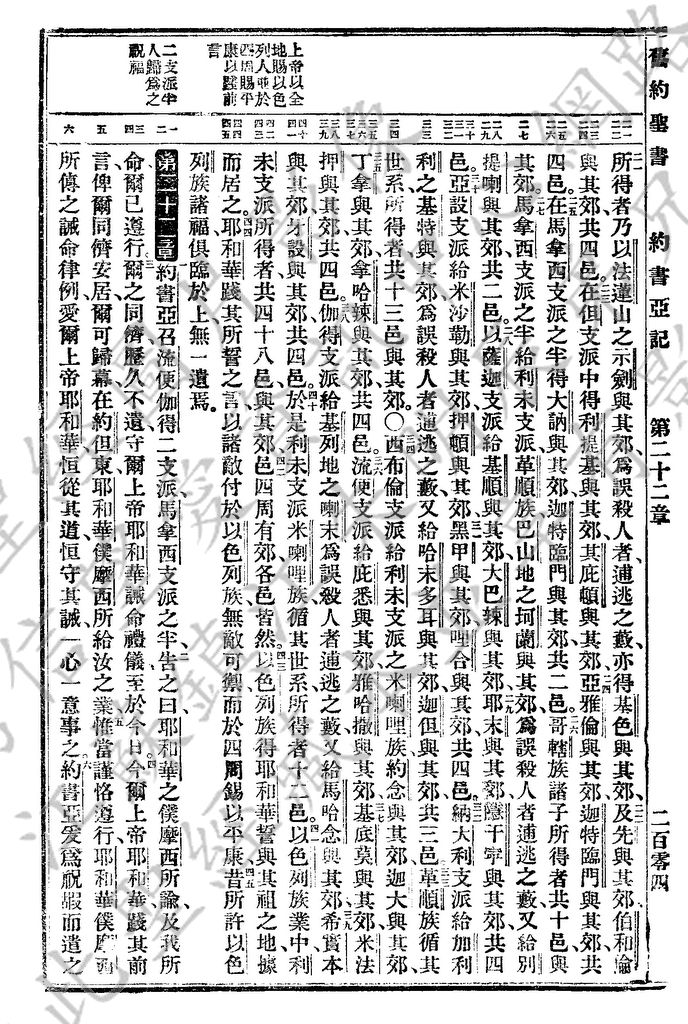 舊約聖書 約書亞記 第二十二章 二百零四
所得者乃以法蓮山之示劍與其郊爲誤殺人者逋逃之藪亦得基色與其郊及先與其郊伯和倫
與其郊共四邑在但支派中得利提基與其郊其庇頓與其郊亞雅倫與其郊迦特臨門與其郊共
四邑在馬拿西支派之半得大訥與其郊迦特臨門與其郊共二邑哥轄族諸子所得者共十邑與
其郊馬拿西支派之半給利未支派革順族巴山地之坷蘭與其郊爲誤殺人者逋逃之藪又給別
提喇與其郊共二邑以薩迦支派給基順與其郊大巴辣與其郊耶末與其郊隱干寧與其郊共四
邑亞設支派給米沙勒與其郊押頓與其郊黑甲與其郊哩合與其郊共四邑納大利支派給加利
利之基特與其郊爲誤殺人者逋逃之藪又給哈末多耳與其郊迦但與其郊共三邑革順族循其
世系所得者共十三邑與其郊〇西布倫支派給利未支派之米喇哩族約念與其郊迦大與其郊
丁拿與其郊拿哈辣與其郊共四邑流便支派給庇悉與其郊雅哈撒與其郊基底莫與其郊米法
押與其郊共四邑伽得支派給基列地之喇末爲誤殺人者逋逃之藪又給馬哈念與其郊希實本
與其郊牙設與其郊共四邑於是利未支派米喇哩族循其世系所得者十二邑以色列族業中利
未支派所得者共四十八邑與其郊邑四周有郊各邑皆然以色列族得耶和華誓與其祖之地據
而居之耶和華踐其所誓之言以諸敵付於以色列族無敵可禦而於四周錫以平康昔所許以色
列族諸福俱臨於上無一遺焉
第二十二章約書亞召流便伽得二支派馬拿西支派之半告之曰耶和華之僕摩西所諭及我所
命爾已遵行爾之同儕歷久不遺守爾上帝耶和華誡命禮儀至於今日今爾上帝耶和華踐其前
言俾爾同儕安居爾可歸幕在約但東耶和華僕摩西所給汝之業惟當謹恪遵行耶和華僕摩西
所傳之誡命律例愛爾上帝耶和華恒從其道恒守其誡一心一意事之約書亞爰爲祝嘏而遣之
上帝以全
地賜以色
列人並於
四周賜平
康以踐前
言
二支派半
人歸爲之
祝福